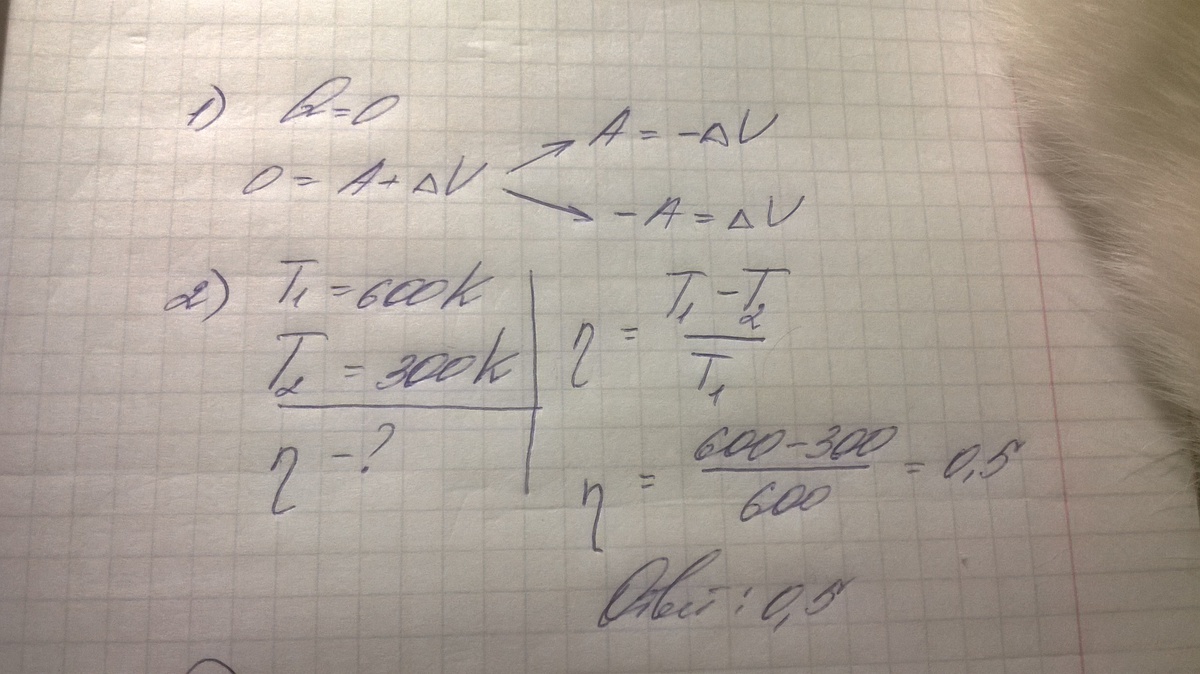 1) Q=0
0 = A + ΔU
A = -ΔU
-A = ΔU
2) T₁ = 600K
T₂ = 300K
η - ?
η = (T₁ - T₂) / T₁
η = (600 - 300) / 600 = 0,5
Ответ: 0,5